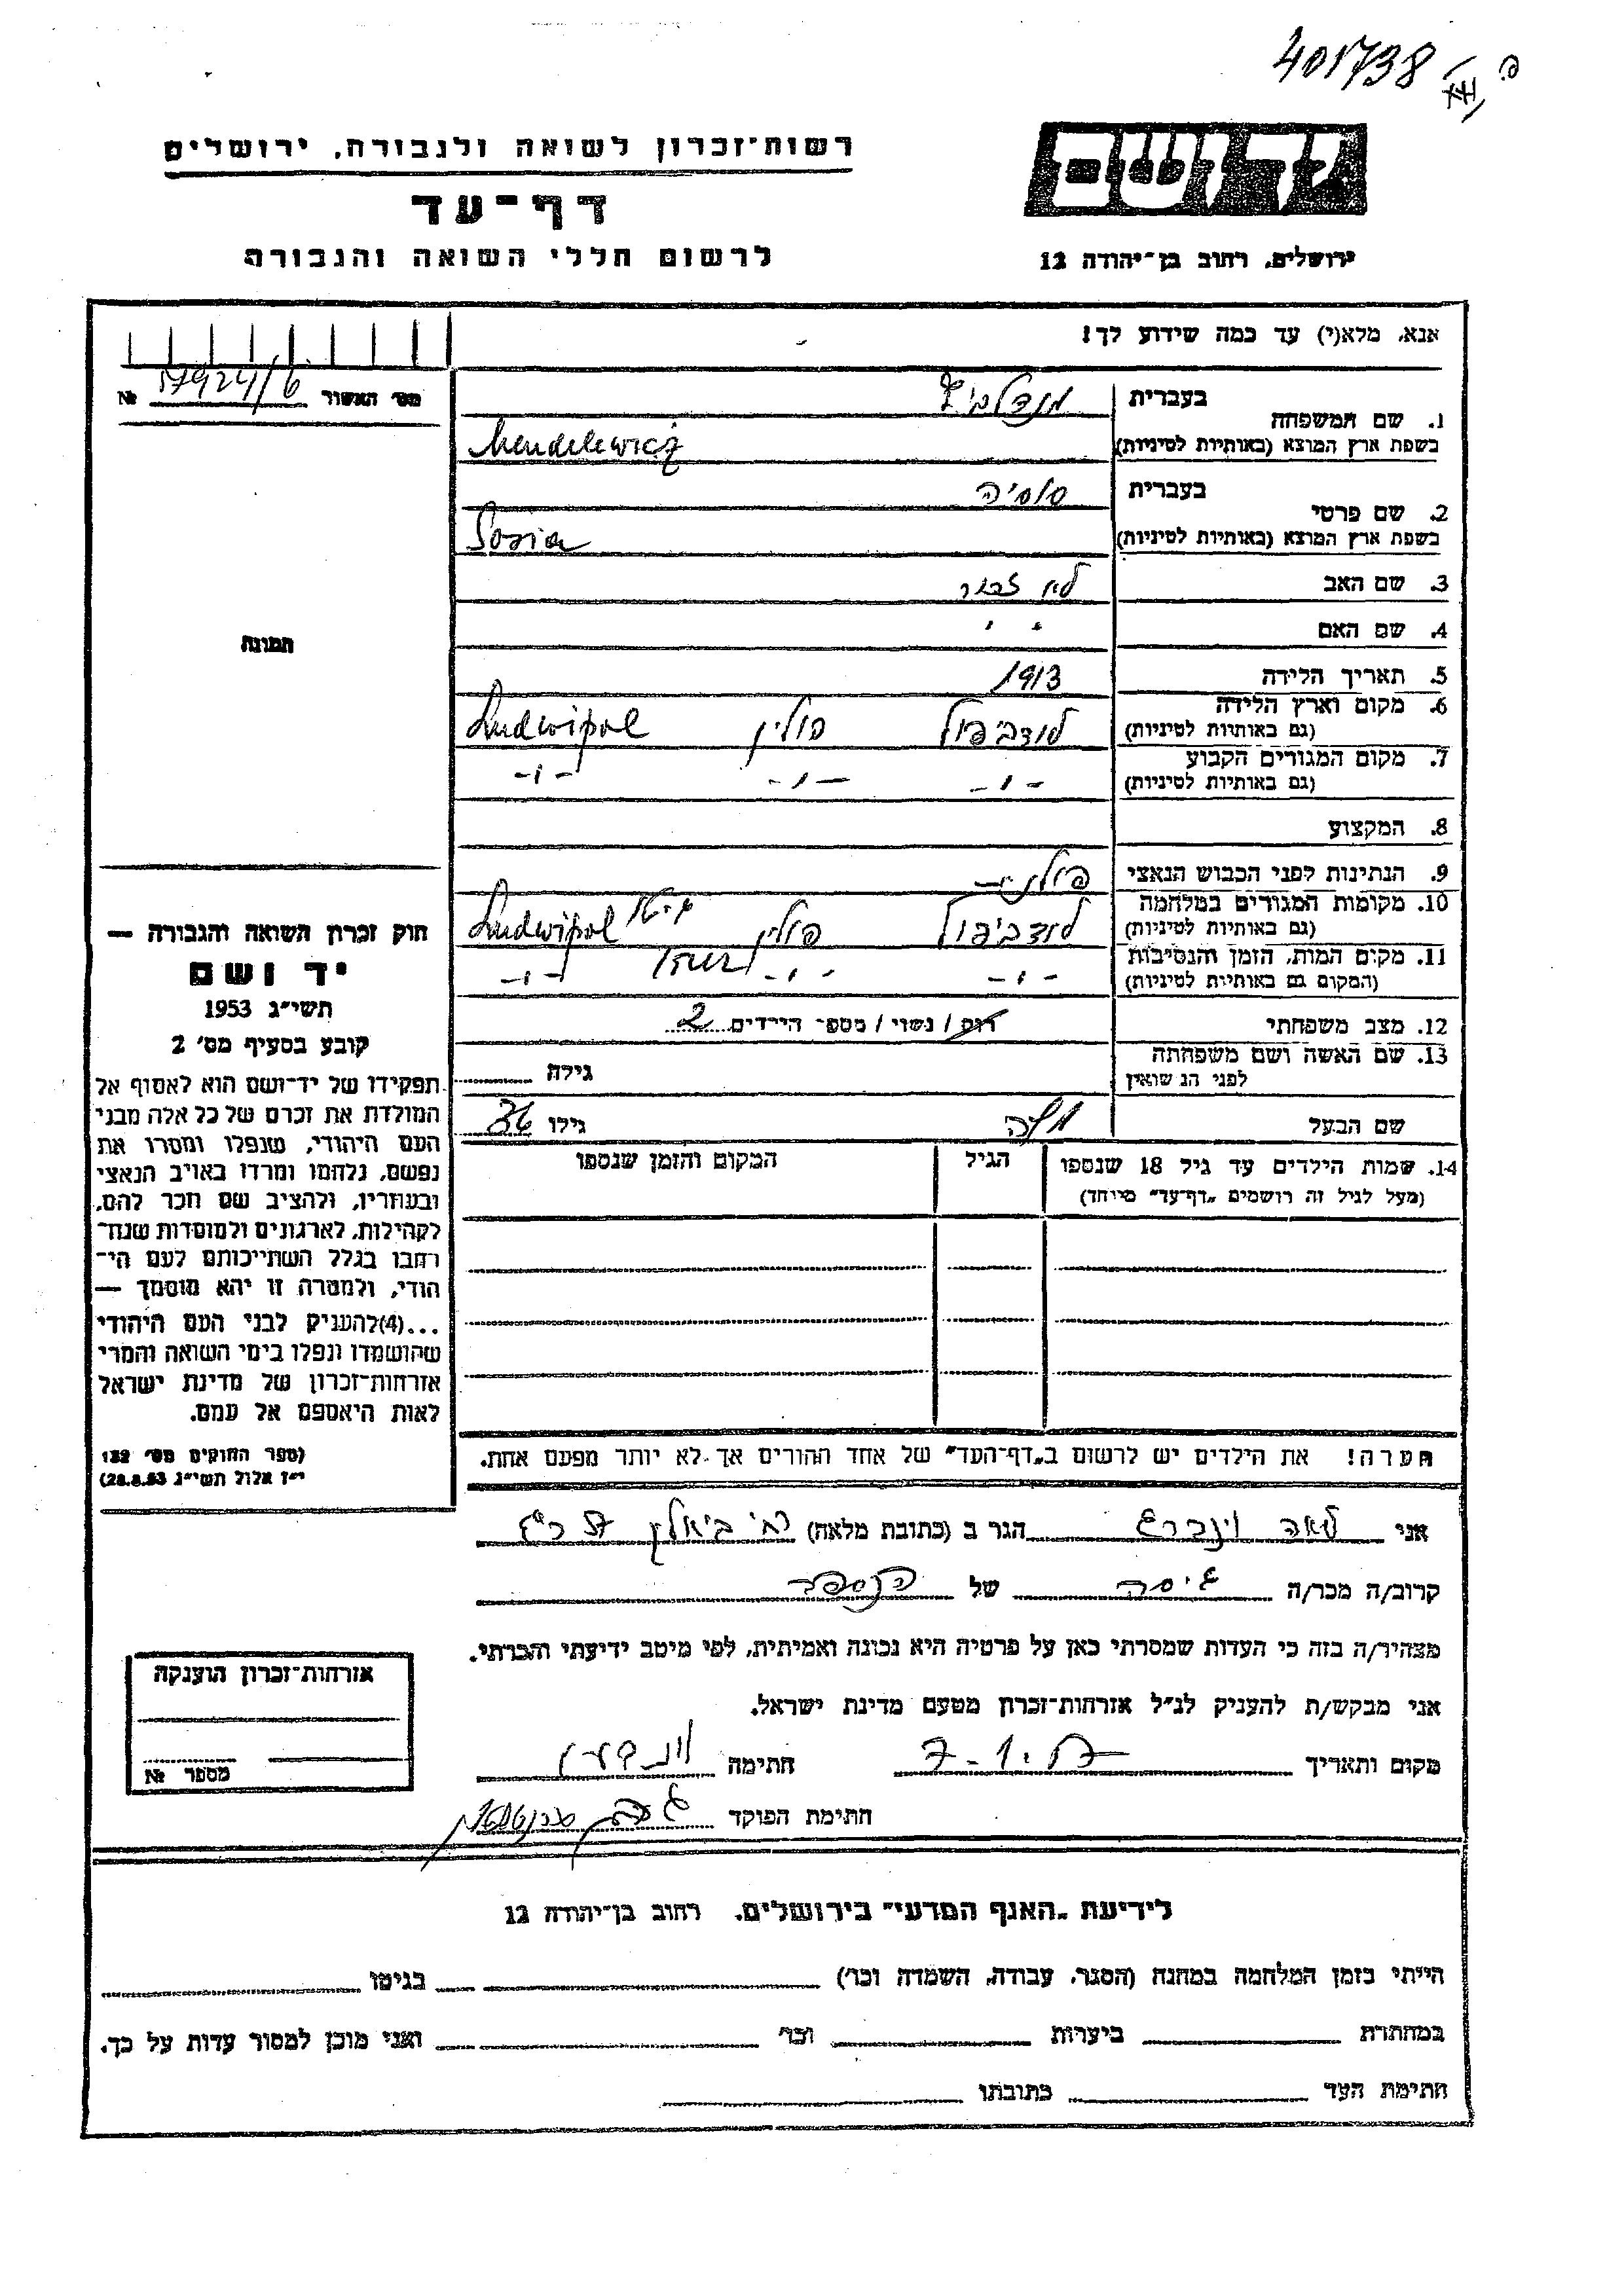 401738
רשות־זכרון לשואה ולגבורה, ירושלים
דף־עד
לרשום חללי השואה והגבורה
יד ושם
ירושלים, רחוב בן־יהודה 12
אנא, מלא(י) עד כמה שידוע לך!
מס׳ האשור №
1. שם המשפחה
בעברית מנדלביץ
בשפת ארץ המוצא (באותיות לטיניות) Mendelewicz
2. שם פרטי
בעברית סוסיה
בשפת ארץ המוצא (באותיות לטיניות) Sosia
3. שם האב לא זכור
4. שם האם
5. תאריך הלידה 1913
6. מקום וארץ הלידה
(גם באותיות לטיניות) לודביפול פולין Ludwipol
7. מקום המגורים הקבוע
(גם באותיות לטיניות) -״- -״- -״-
8. המקצוע
9. הנתינות לפני הכבוש הנאצי פולנית
10. מקומות המגורים במלחמה
(גם באותיות לטיניות) לודביפול פולין Ludwipol
11. מקום המות, הזמן והנסיבות
(המקום גם באותיות לטיניות) -״- -״- -״-
12. מצב משפחתי רווק/ נשוי/ מספר הילדים 2
13. שם האשה ושם משפחתה
לפני הנשואין גילה
שם הבעל משה גילו 36
14. שמות הילדים עד גיל 18 שנספו
(מעל לגיל זה רושמים „דף־עד״ מיוחד)
הגיל
המקום והזמן שנספו
הערה! את הילדים יש לרשום ב„דף־העד״ של אחד ההורים אך לא יותר מפעם אחת.
תמונה
חוק זכרון השואה והגבורה —
יד ושם
תשי״ג 1953
קובע בסעיף מס׳ 2
תפקידו של יד־ושם הוא לאסוף אל
המולדת את זכרם של כל אלה מבני
העם היהודי, שנפלו ומסרו את
נפשם, נלחמו ומרדו באויב הנאצי
ובעוזריו, ולהציב שם וזכר להם,
לקהילות, לארגונים ולמוסדות שנח־
רבו בגלל השתייכותם לעם הי־
הודי, ולמטרה זו יהא מוסמך —
...(4)להעניק לבני העם היהודי
שהושמדו ונפלו בימי השואה והמרי
אזרחות־זכרון של מדינת ישראל
לאות היאספם אל עמם.
(ספר החוקים מס׳ 132
י״ז אלול תשי״ג 28.8.53)
אני לאה וינברג הגר ב (כתובת מלאה)
קרוב/ה מכר/ה גיסה של הנספה
מצהיר/ה בזה כי העדות שמסרתי כאן על פרטיה היא נכונה ואמיתית, לפי מיטב ידיעתי והכרתי.
אני מבקש/ת להעניק לנ״ל אזרחות־זכרון מטעם מדינת ישראל.
מקום ותאריך חתימה
חתימת הפוקד
אזרחות־זכרון הוענקה
מספר №
לידיעת „האגף המדעי״ בירושלים, רחוב בן־יהודה 12
הייתי בזמן המלחמה במחנה (הסגר, עבודה, השמדה וכו׳) בגיטו
במחתרת ביערות וכו׳ ואני מוכן למסור עדות על כך.
חתימת העד כתובתו